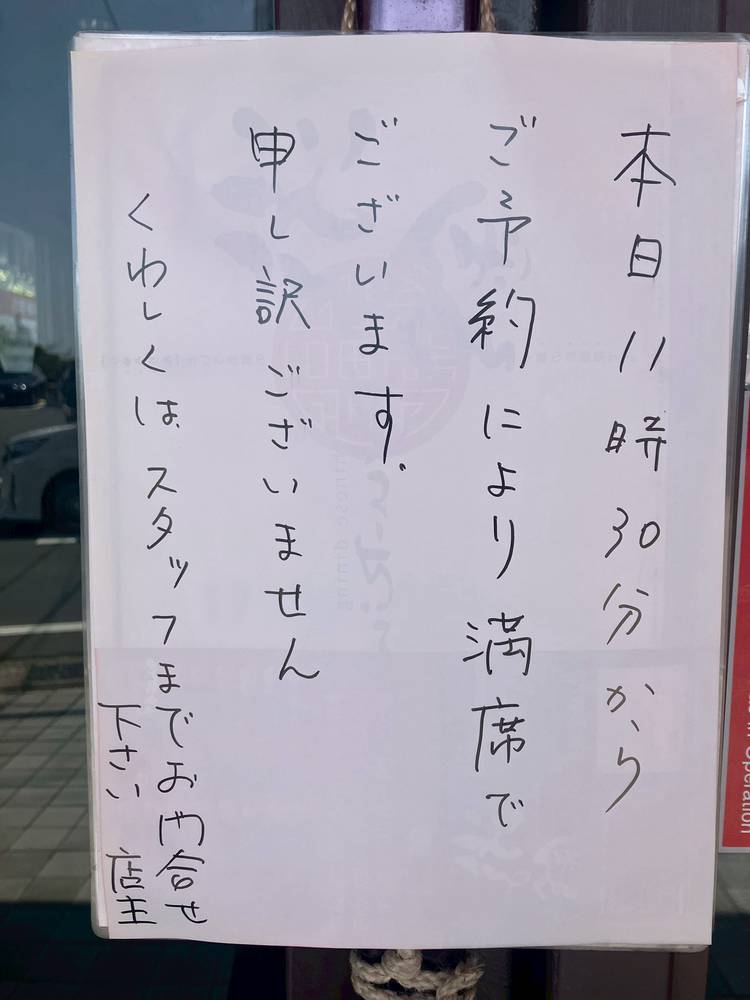 本日11時30分から
ご予約により満席で
ございます。
申し訳ございません
くわしくは、スタッフまでお問合せ
下さい 店主
in Operation